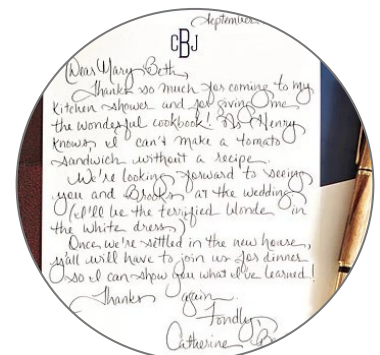 September
CBJ
Dear Mary Beth,
Thanks so much for coming to my
kitchen shower and for giving me
the wonderful cookbook! As Henry
knows, I can't make a tomato
sandwich without a recipe.
We're looking forward to seeing
you and Brooks at the wedding
(I'll be the terrified blonde in
the white dress)
Once we're settled in the new house,
y'all will have to join us for dinner
so I can show you what I've learned!
Thanks again.
Fondly,
Catherine